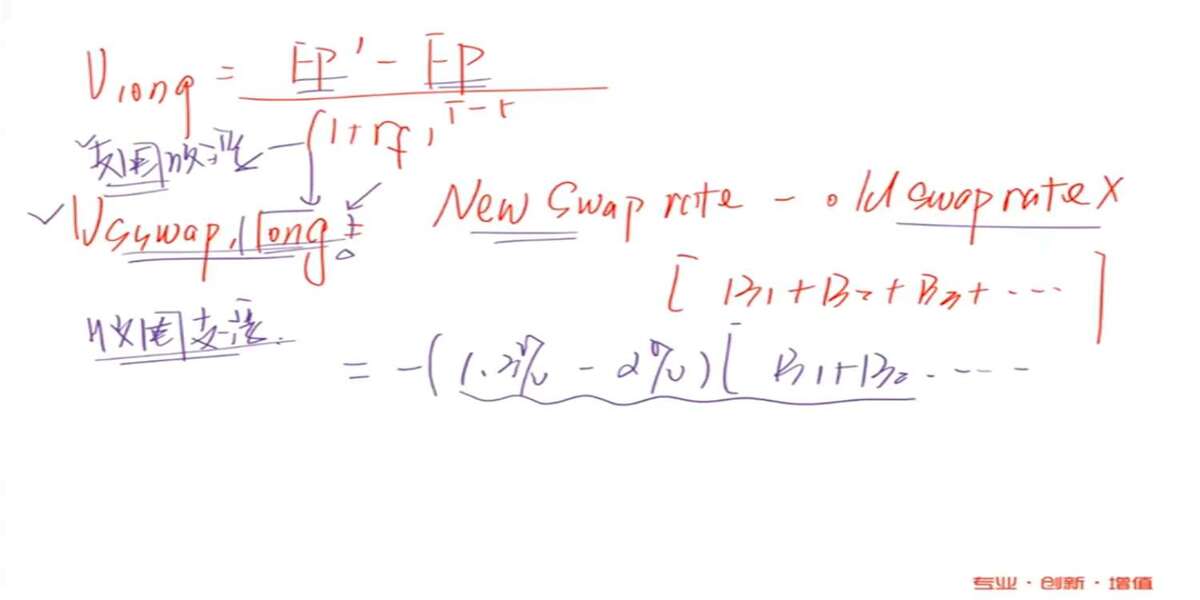 V long = FP' - FP
(1+rf)^T-t
支固收浮
Vswap, long = New swap rate - old swap rate X
[ B1 + B2 + B3 + ... ]
收固支浮
= -( 1.3% - 2% ) [ B1 + B2 ....
专业 · 创新 · 增值